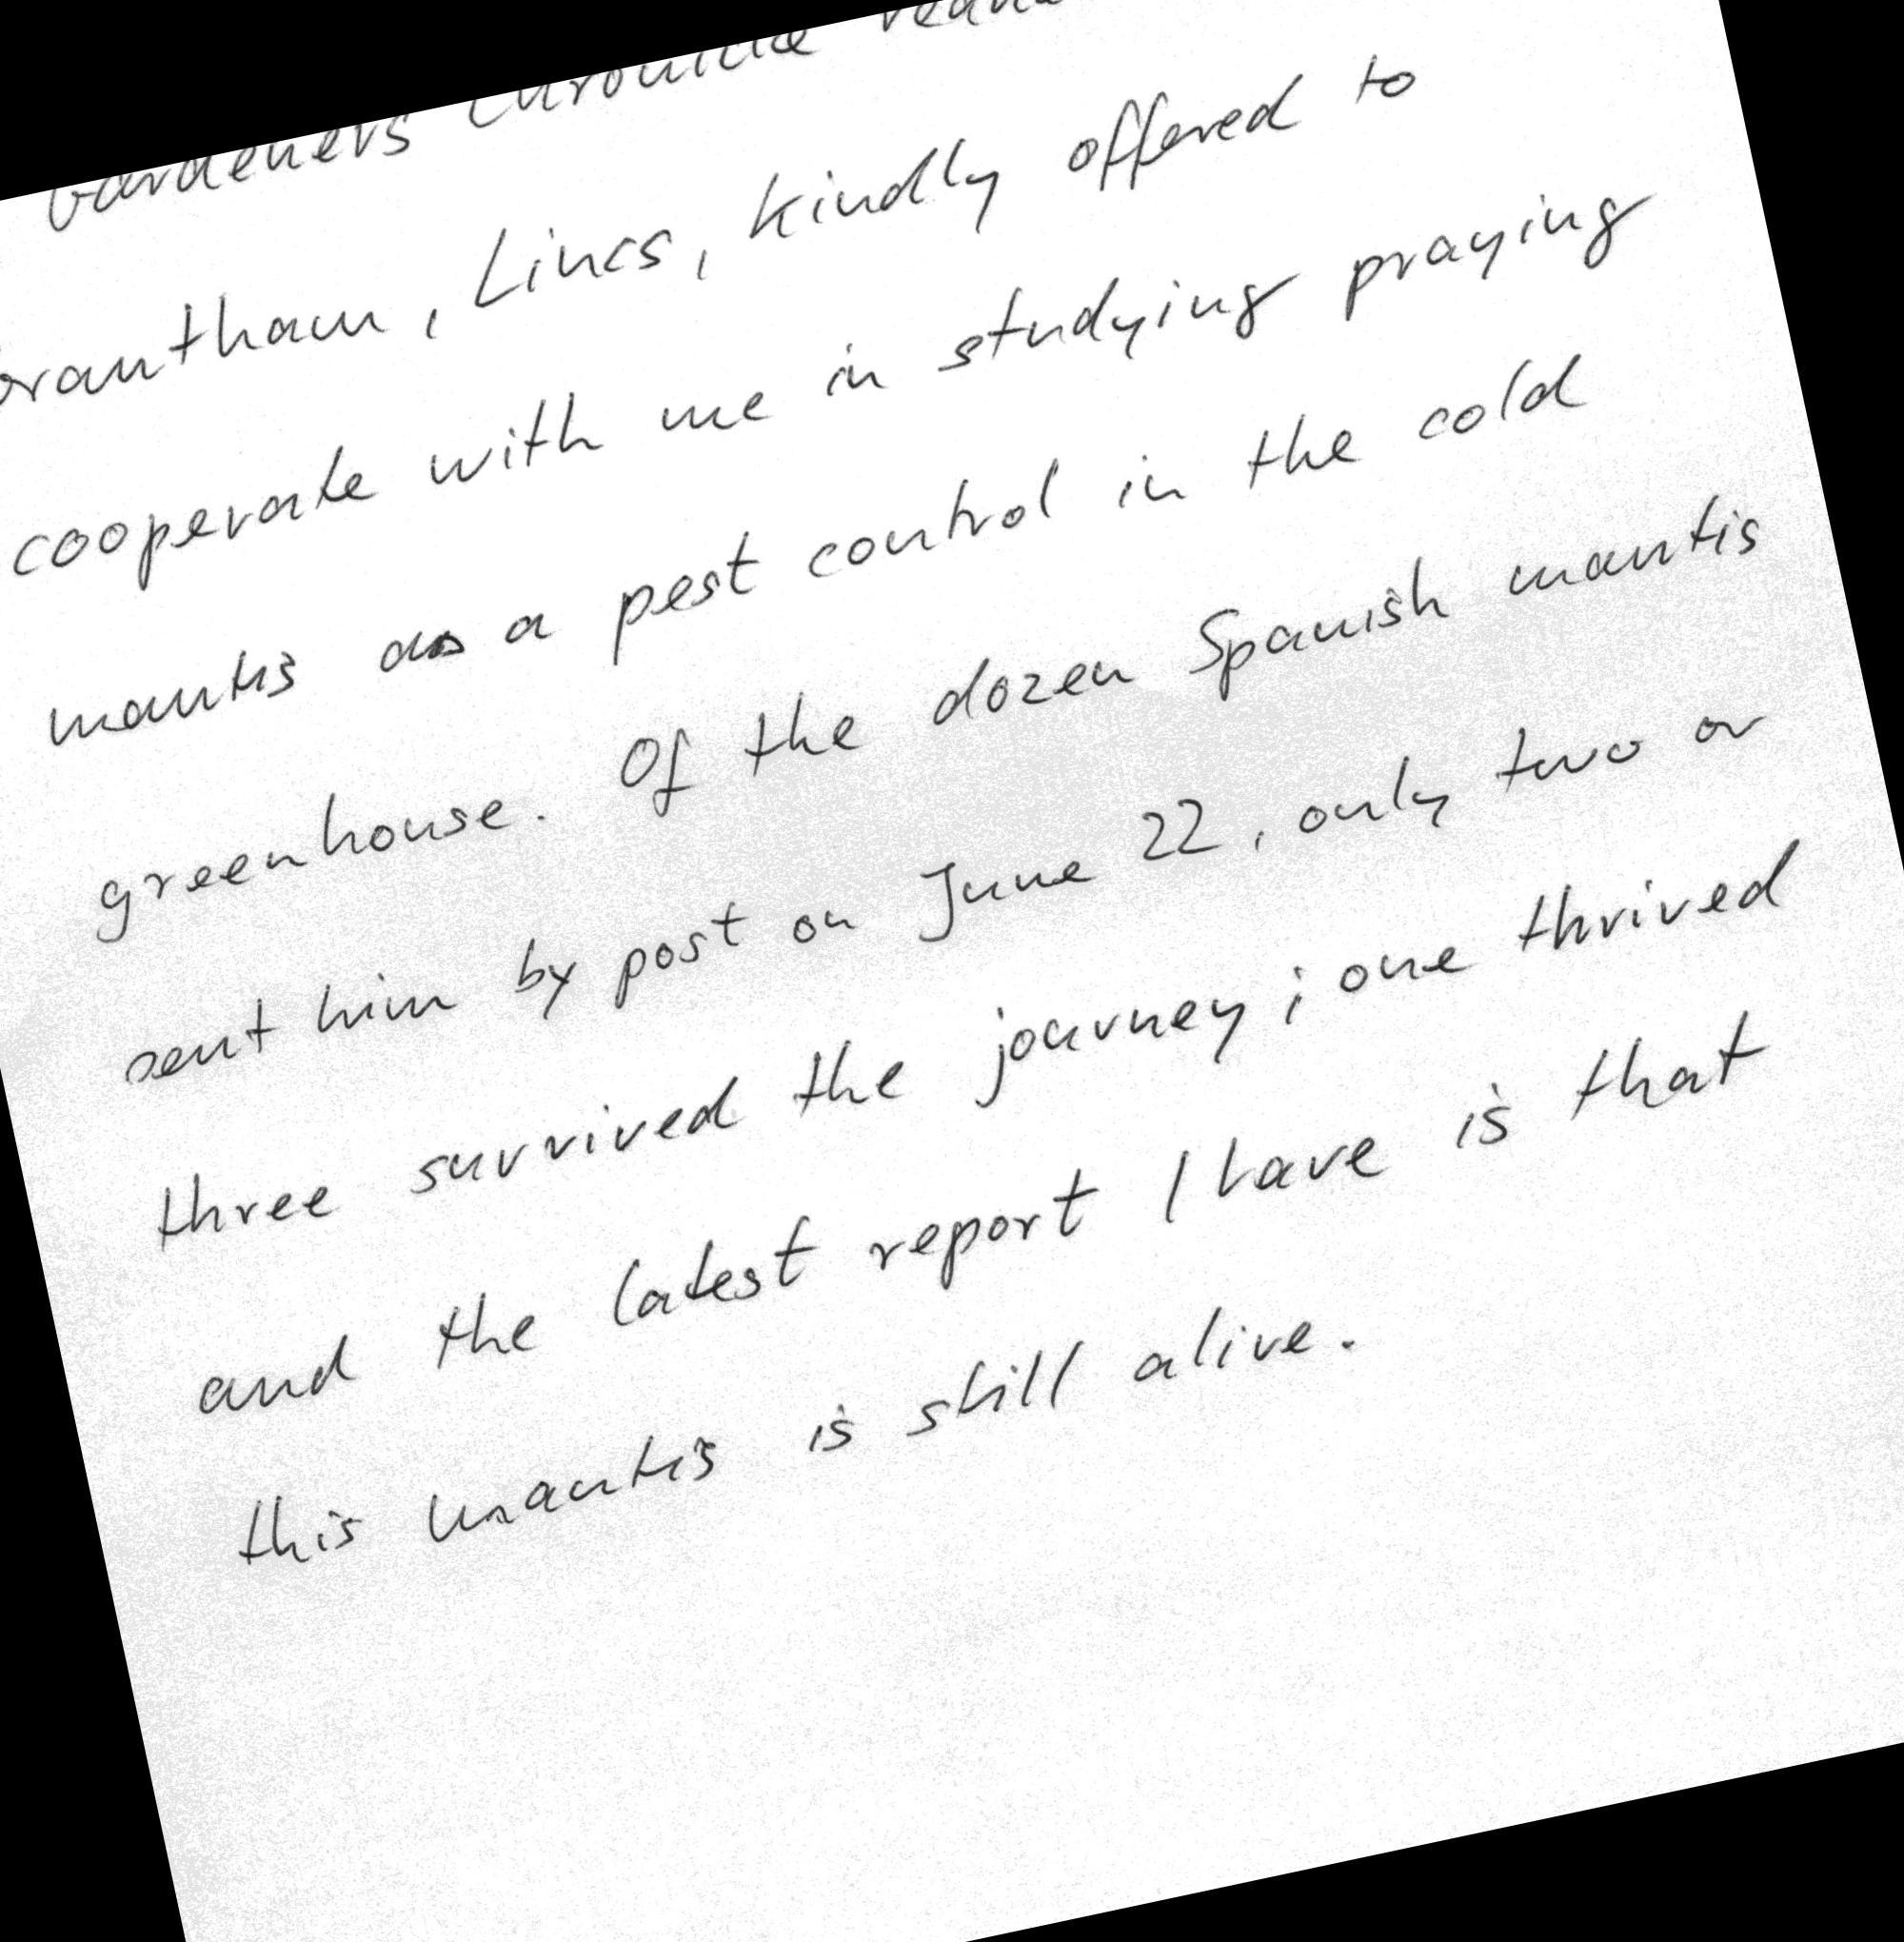 Gardeners Chronicle
Grantham, Lincs, kindly offered to
cooperate with me in studying praying
mantis as a pest control in the cold
greenhouse. Of the dozen Spanish mantis
sent him by post on June 22, only two or
three survived the journey; one thrived
and the latest report I have is that
this mantis is still alive.